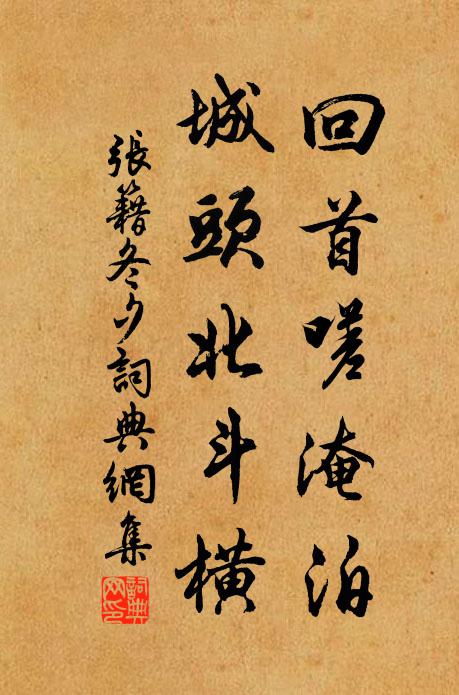 回首嗟淹泊
城頭北斗橫
張籍冬夕詞典網集
詞典網印